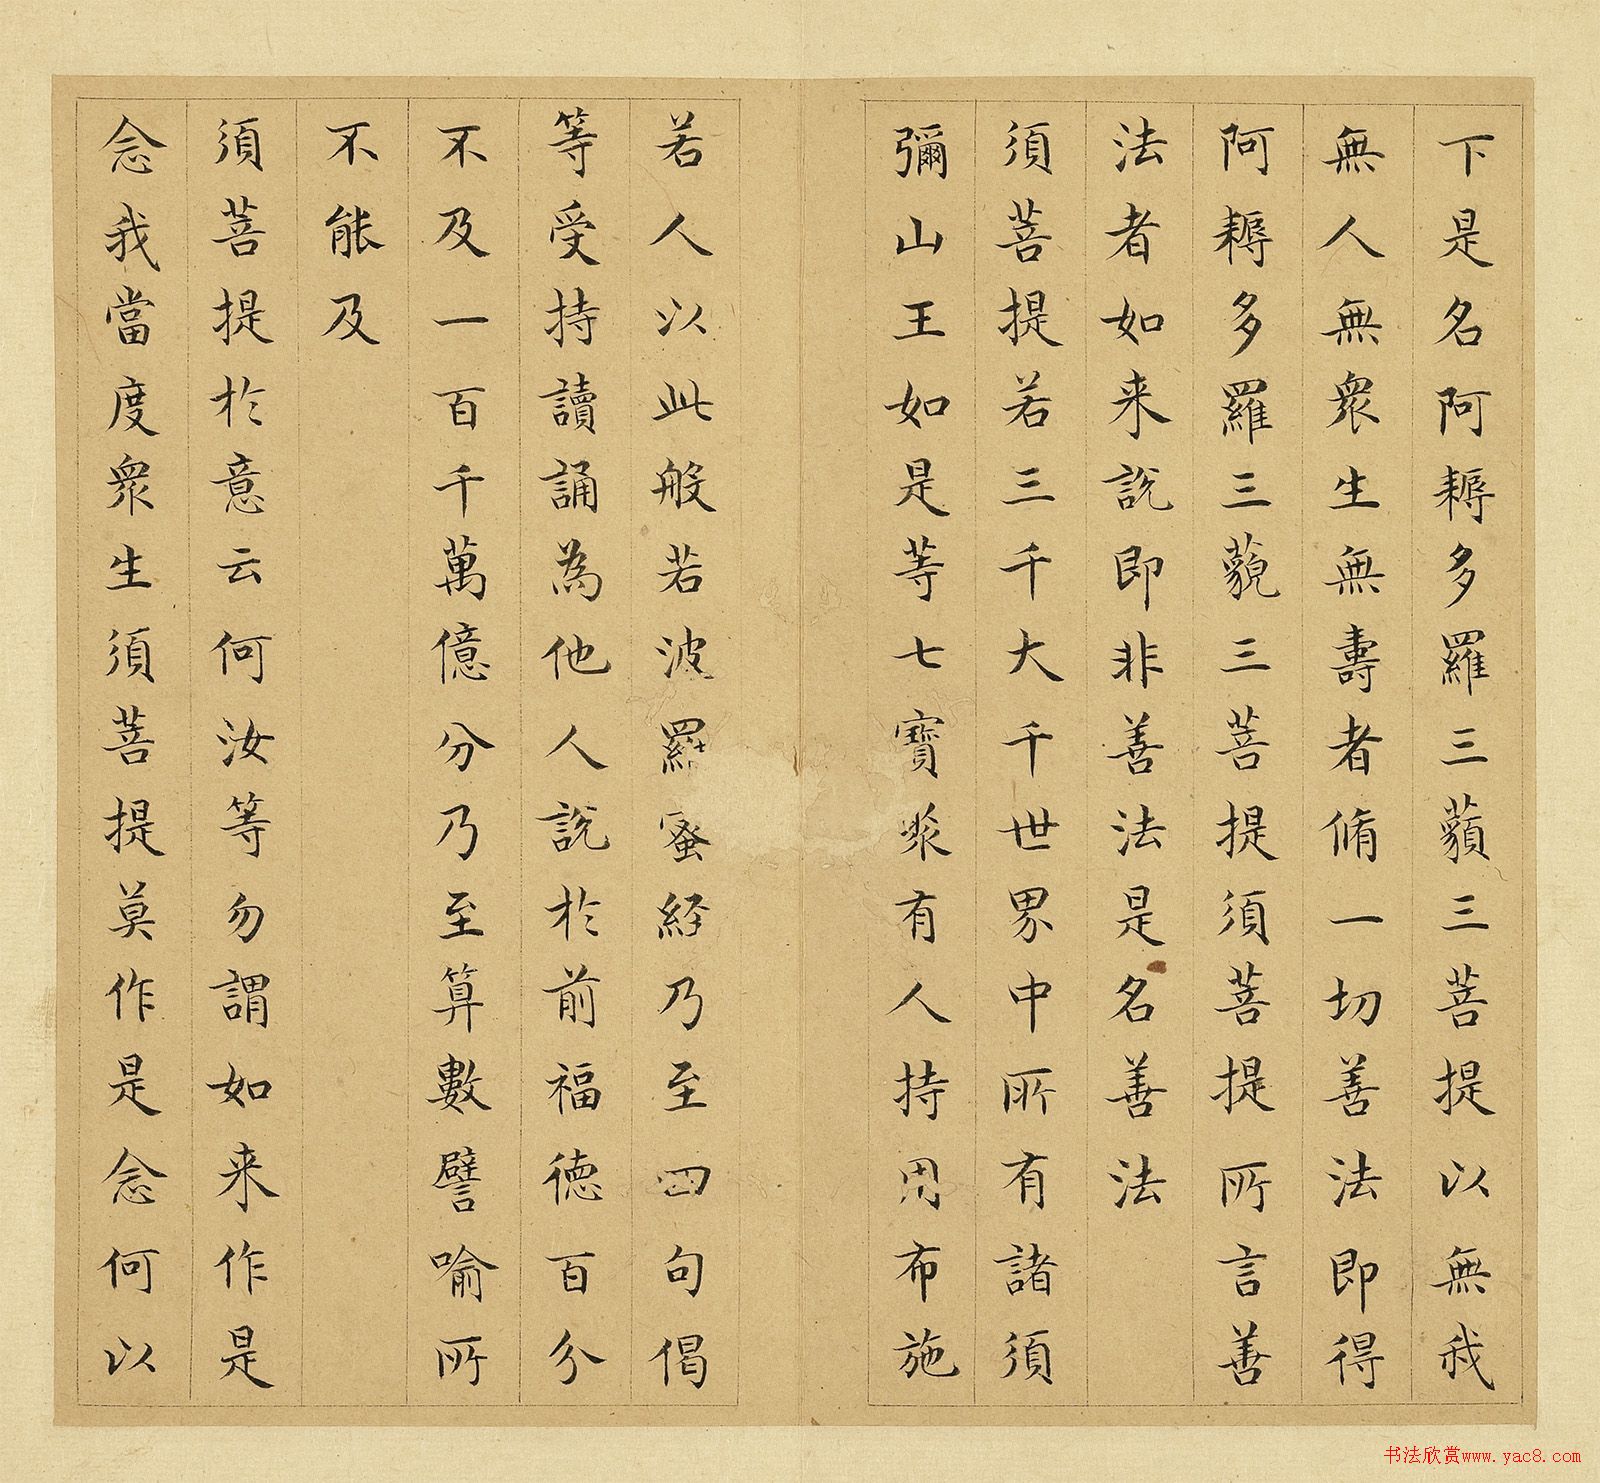 下是名阿耨多羅三藐三菩提以無我
無人無衆生無壽者脩一切善法即得
阿耨多羅三藐三菩提須菩提所言善
法者如来說即非善法是名善法
須菩提若三千大千世界中所有諸須
彌山王如是等七寶聚有人持用布施
若人以此般若波羅蜜経乃至四句偈
等受持讀誦為他人說於前福德百分
不及一百千萬億分乃至算數譬喻所
不能及
須菩提於意云何汝等勿謂如来作是
念我當度衆生須菩提莫作是念何以
书法欣赏www.yac8.com